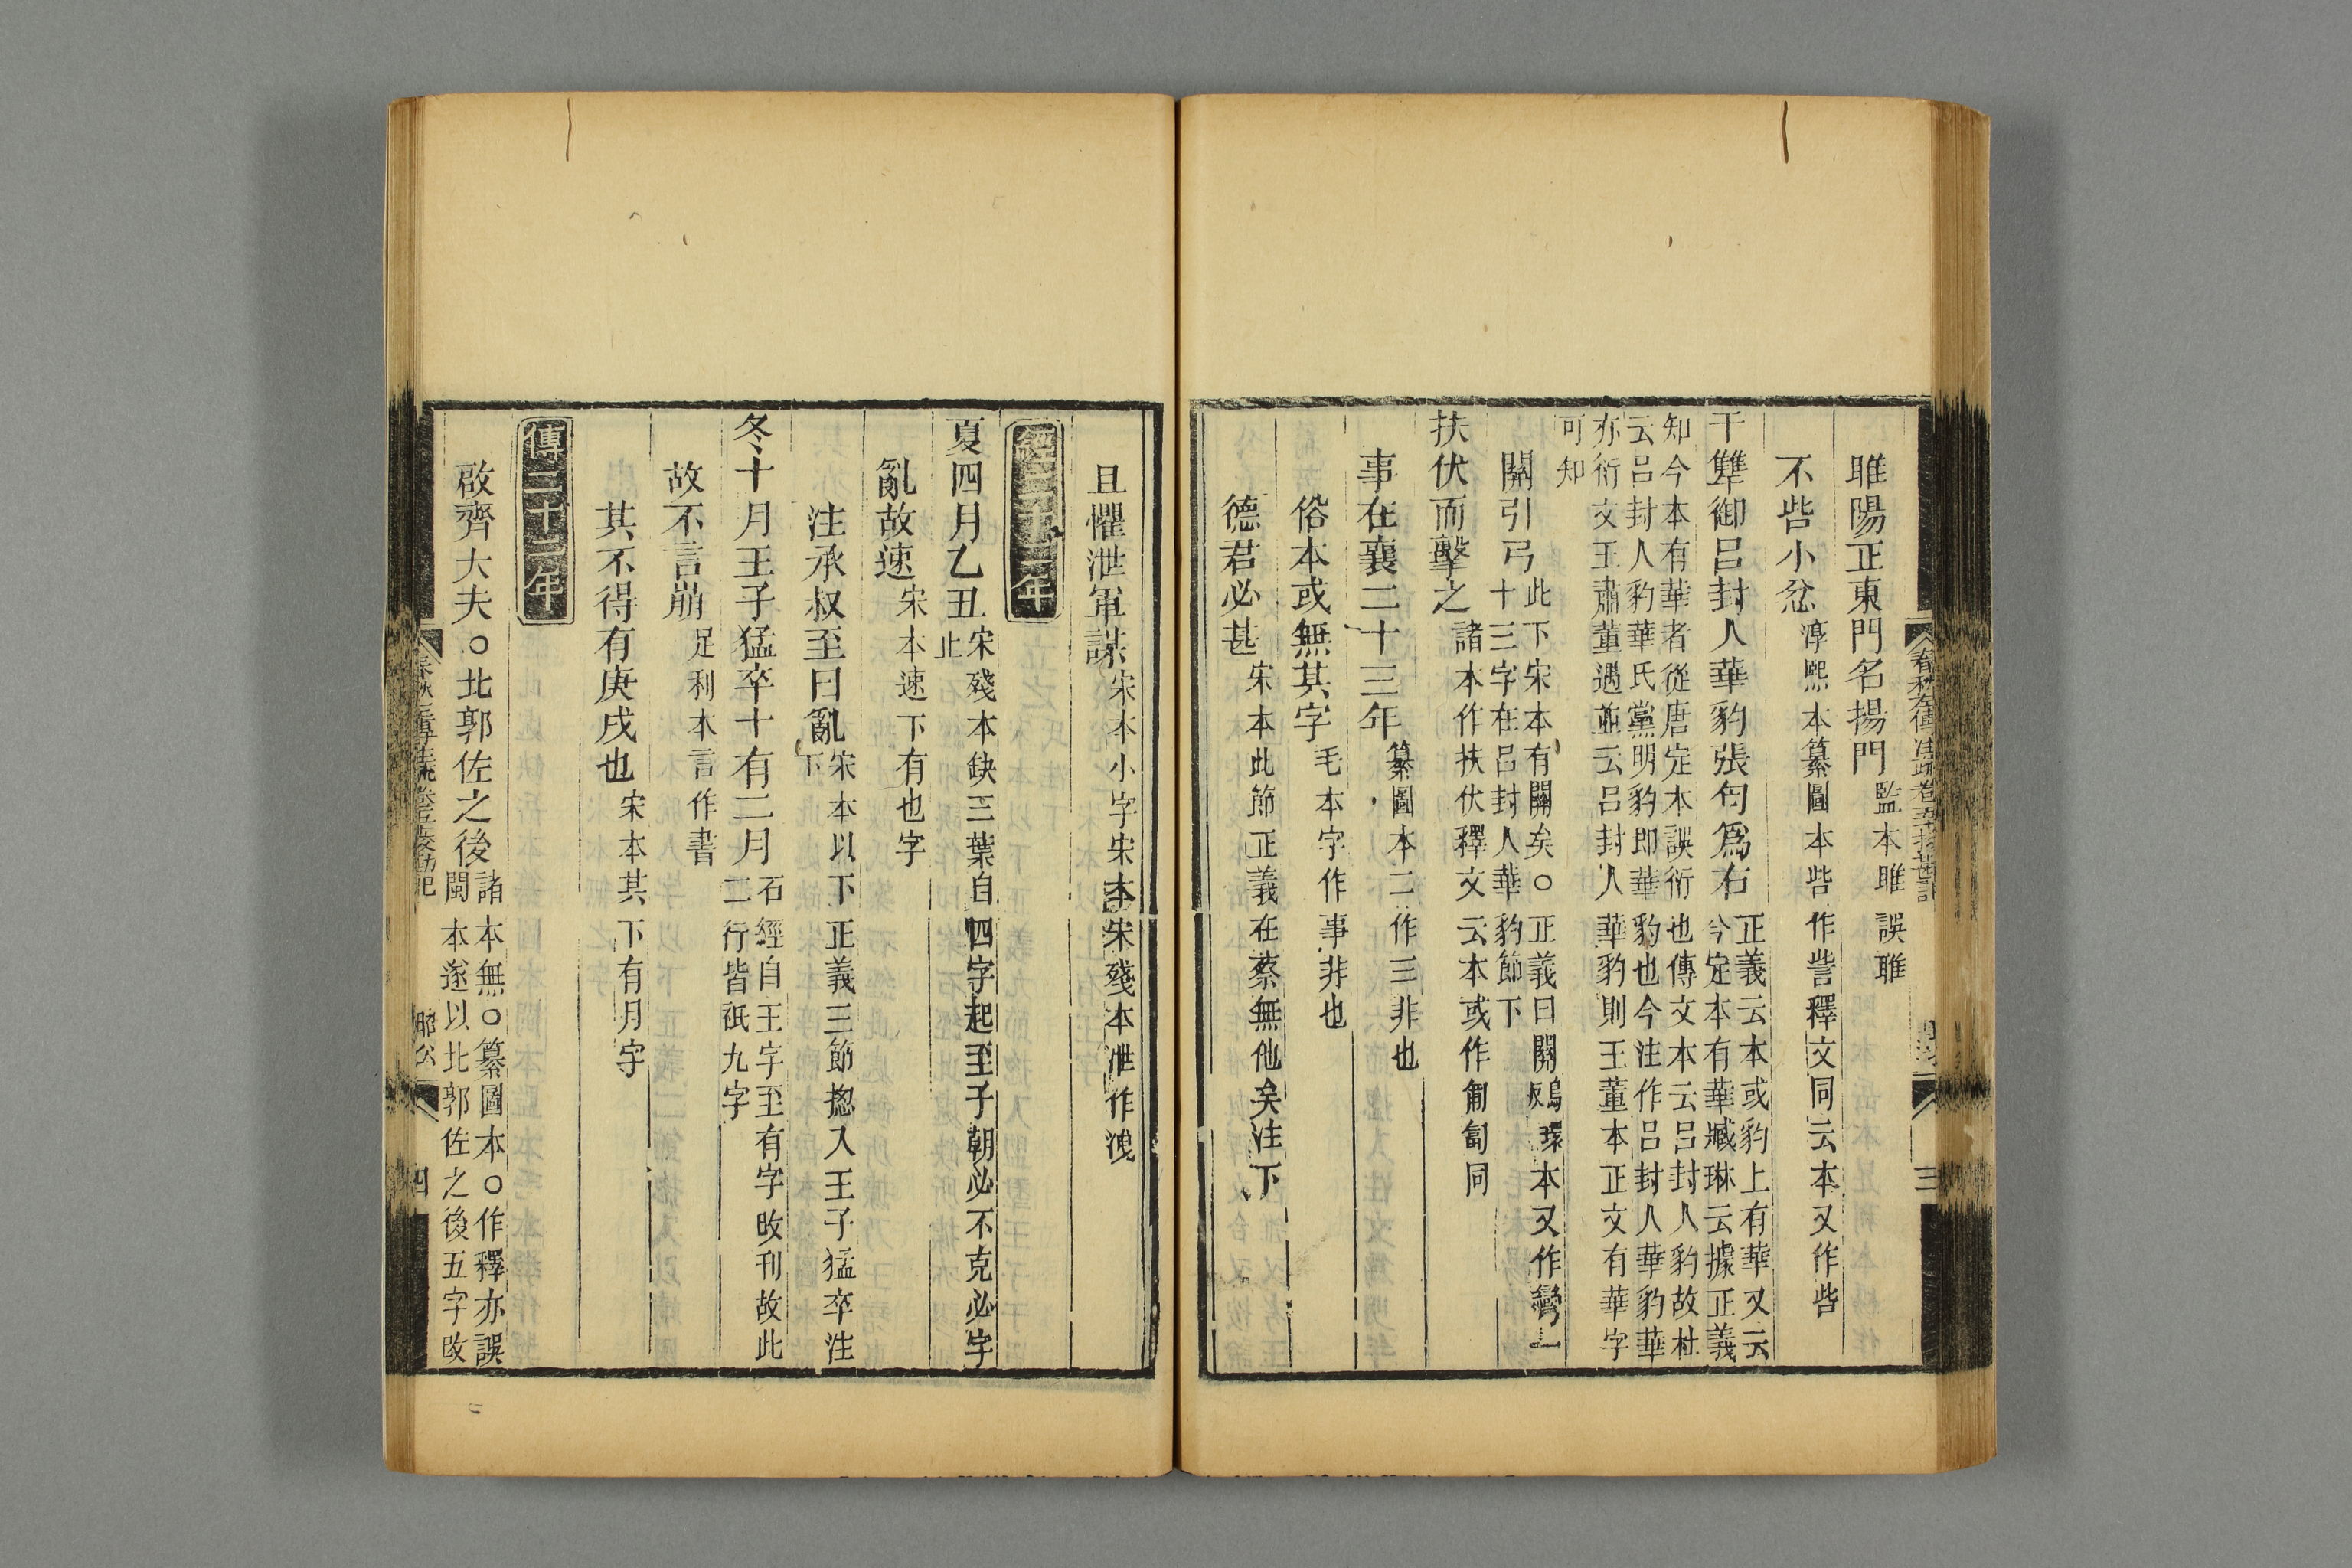 睢陽正東門名揚門監本睢誤雎
不呰小忿淳熙本纂圖本呰作訾釋文同云本又作呰
干犫御呂封人華豹張匄爲右正義云本或豹上有華又云
今定本有華臧琳云據正義
知今本有華者從唐定本誤衍也傳文本云呂封人豹故杜
云呂封人豹華氏黨明豹即華豹也今注作呂封人華豹華
亦衍文王肅董遇並云呂封人華豹則王董本正文有華字
可知
關引弓此下宋本有關矣○正義曰關
環本又作彎一
十三字在呂封人華豹節下
扶伏而擊之諸本作扶伏釋文云本或作匍匐同
事在襄二十三年纂圖本二作三非也
俗本或無其字毛本字作事非也
德君必甚宋本此節正義在蔡無他矣注下
春秋左傳注疏卷五十校勘記
三
且懼泄軍謀宋本小字宋本宋殘本泄作洩
經二十二年
夏四月乙丑宋殘本缺三葉自四字起至子朝必不克必字
止
亂故速宋本速下有也字
注承叔至曰亂宋本以下正義三節揔入王子猛卒注
下
冬十月王子猛卒十有二月石經自王字至有字改刊故此
二行皆祇九字
故不言崩足利本言作書
其不得有庚戌也宋本其下有月字
傳二十二年
啟齊大夫○北郭佐之後諸本無○纂圖本○作釋亦誤
閩本遂以北郭佐之後五字改
昭公
四